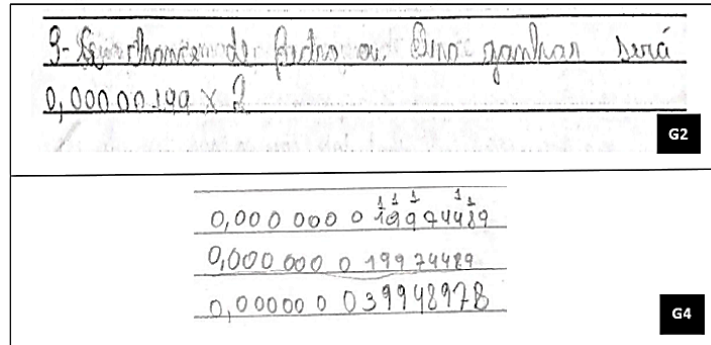 9- chance de Pedro ou ganhar será
0,00000199 x 2
G2
0,000 000 0 19974489
0,000 000 0 19974489
0,00000 0 039948978
G4